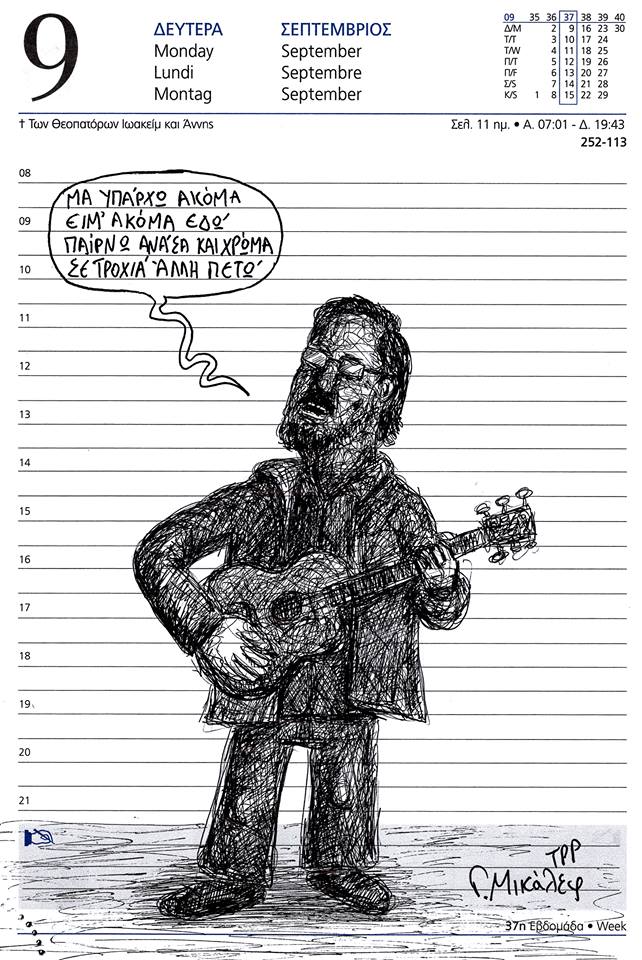 9
ΔΕΥΤΕΡΑ ΣΕΠΤΕΜΒΡΙΟΣ
Monday September
Lundi Septembre
Montag September
09 35 36 37 38 39 40
Δ/M 2 9 16 23 30
T/T 3 10 17 24
T/W 4 11 18 25
Π/T 5 12 19 26
Π/F 6 13 20 27
Σ/S 7 14 21 28
K/S 1 8 15 22 29
† Των Θεοπατόρων Ιωακείμ και Άννης Σελ. 11 ημ. • Α. 07:01 - Δ. 19:43
252-113
08
ΜΑ ΥΠΑ΄ΡΧΩ ΑΚΌΜΑ
ΕΙΜ' ΑΚΌΜΑ ΕΔΩ΄
09
ΠΑΊΡΝΩ ΑΝΑ΄ΣΑ ΚΑΙ ΧΡΏΜΑ
ΣΕ ΤΡΟΧΙΑ΄ ΆΛΛΗ ΠΕΤΩ΄
10
11
12
13
14
15
16
17
18
19
20
21
ΤΡΡ
Γ. Μικάλεφ
37η Εβδομάδα • Week